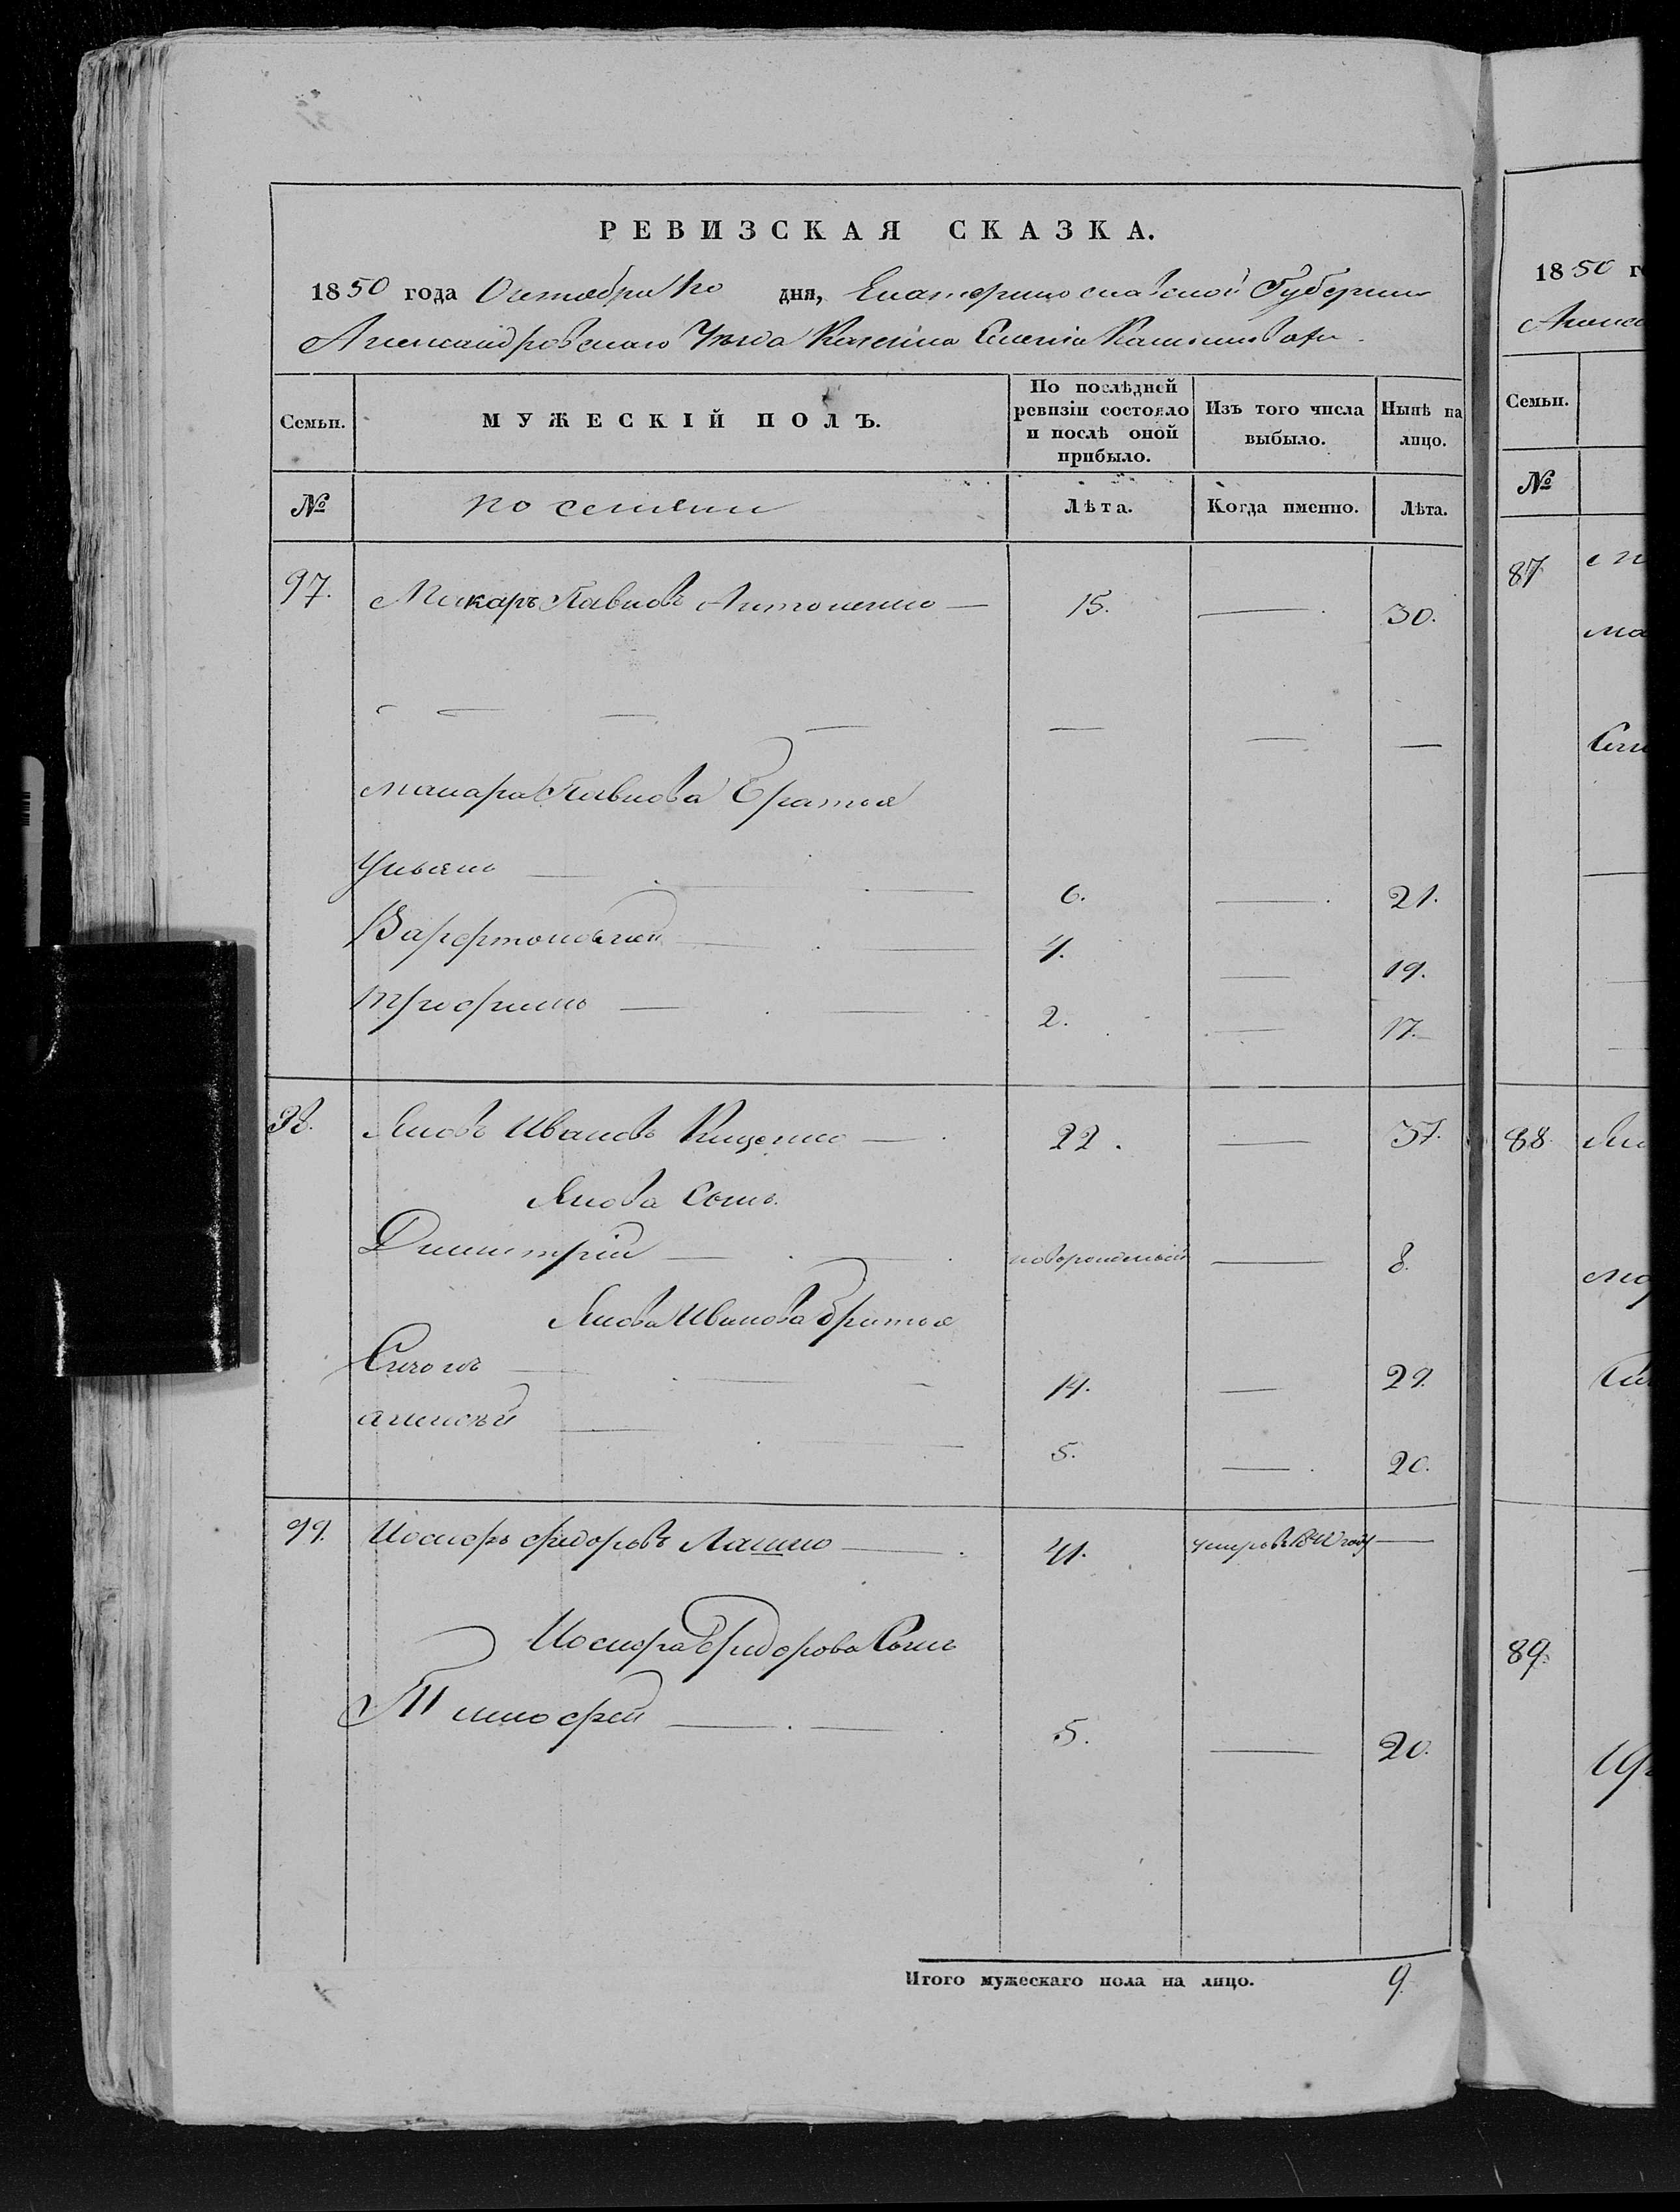 РЕВИЗСКАЯ СКАЗКА.
1850 года Октября 10 дня, Екатеринославской Губернии
Александровскаго Уѣзда Казенна Селенія
Семьи. МУЖЕСКІЙ ПОЛЪ. По послѣдней ревизіи состояло и послѣ оной прибыло. Изъ того числа выбыло. Нынѣ на лицо.
№ Лѣта. Когда именно. Лѣта.
97. Макаръ Павловъ Антоненко — 15. — 30.
Макара Павлова Братья
Ульянъ — 6. — 21.
4. — 19.
Трофимъ — 2. — 17.
98. Яковъ Ивановъ Кищенко — 22. — 37.
Якова Сынъ
Димитрій — новорожденный — 8.
Якова Иванова братья
14. — 29.
Алексѣй — 5. — 20.
99. Иосифъ Фидоровъ Лашко — 41. умеръ въ году —
Иосифа Фидорова Сынъ
Тимофей — 5. — 20.
Итого мужескаго пола на лицо. 9.
1850 г
Семьи.
№
87
88
89.